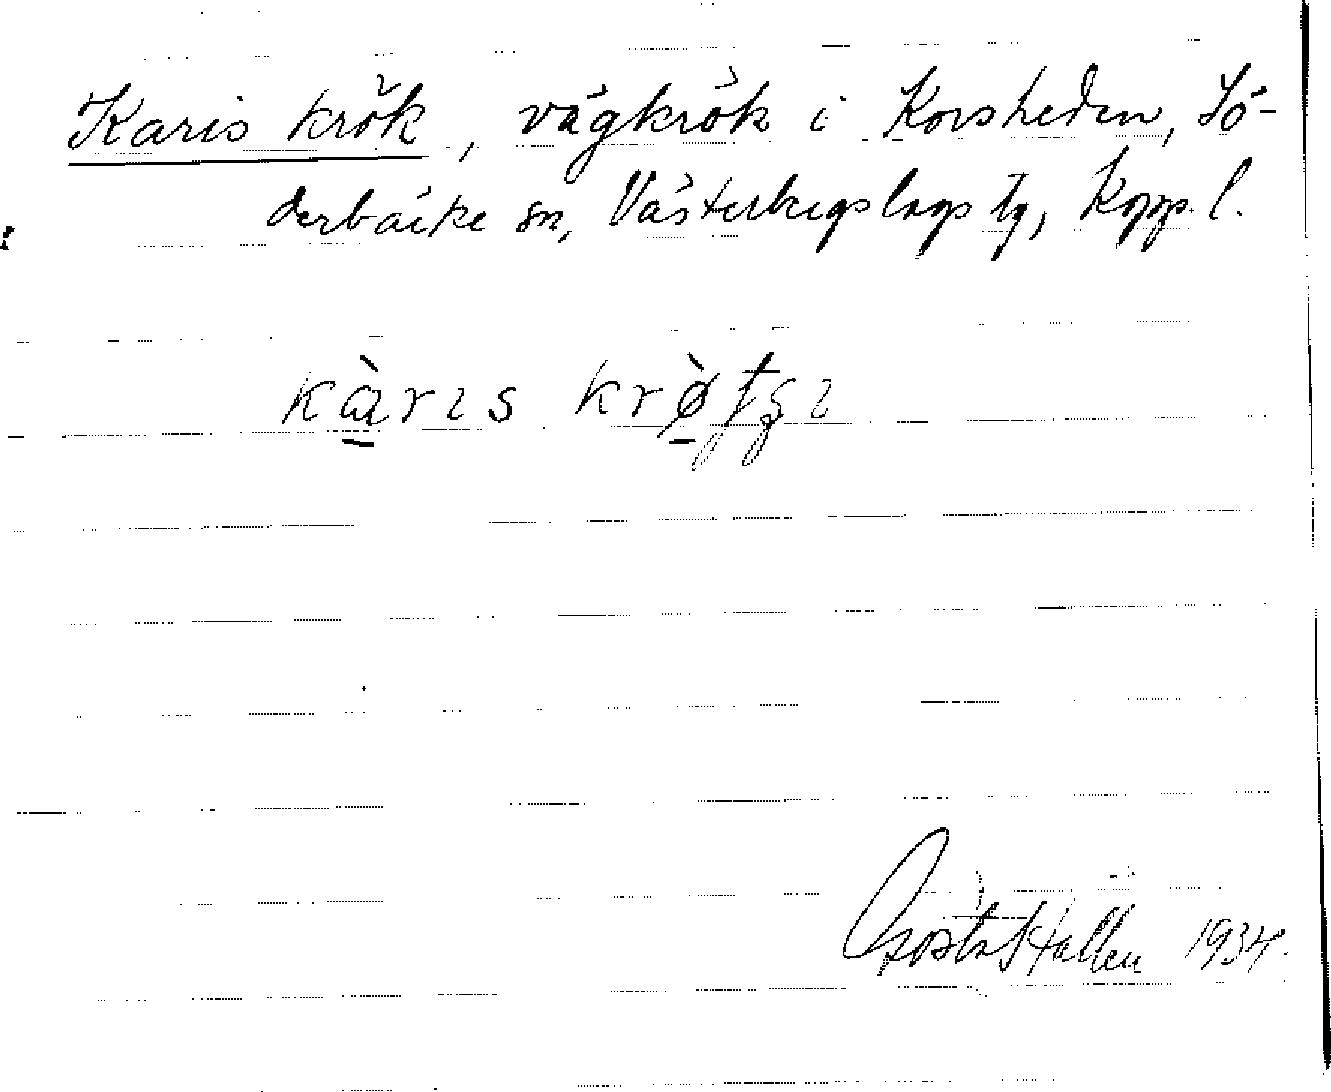 Karis krök, vägkrök i Korsheden, Sö-
derbärke sn, Västerbergslags tg, Kopp. l.
kàris
Gösta Hallén 1934.